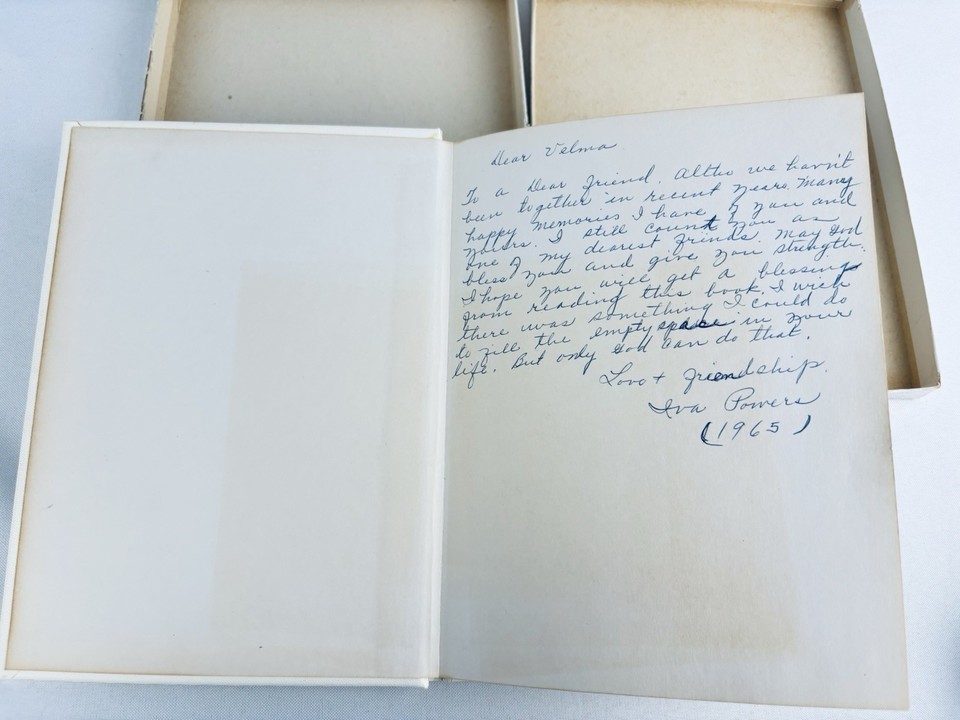 Dear Velma
To a Dear Friend. Altho we havn't
been together in recent years. Many
happy memories I have of you and
yours. I still count you as
one of my dearest frinds. May God
bless you and give you strength.
I hope you will get a blessing
from reading this book. I wich
there was something I could do
to fill the empty space in your
life. But only God can do that.
Love + friendship.
Iva Powers
(1965)